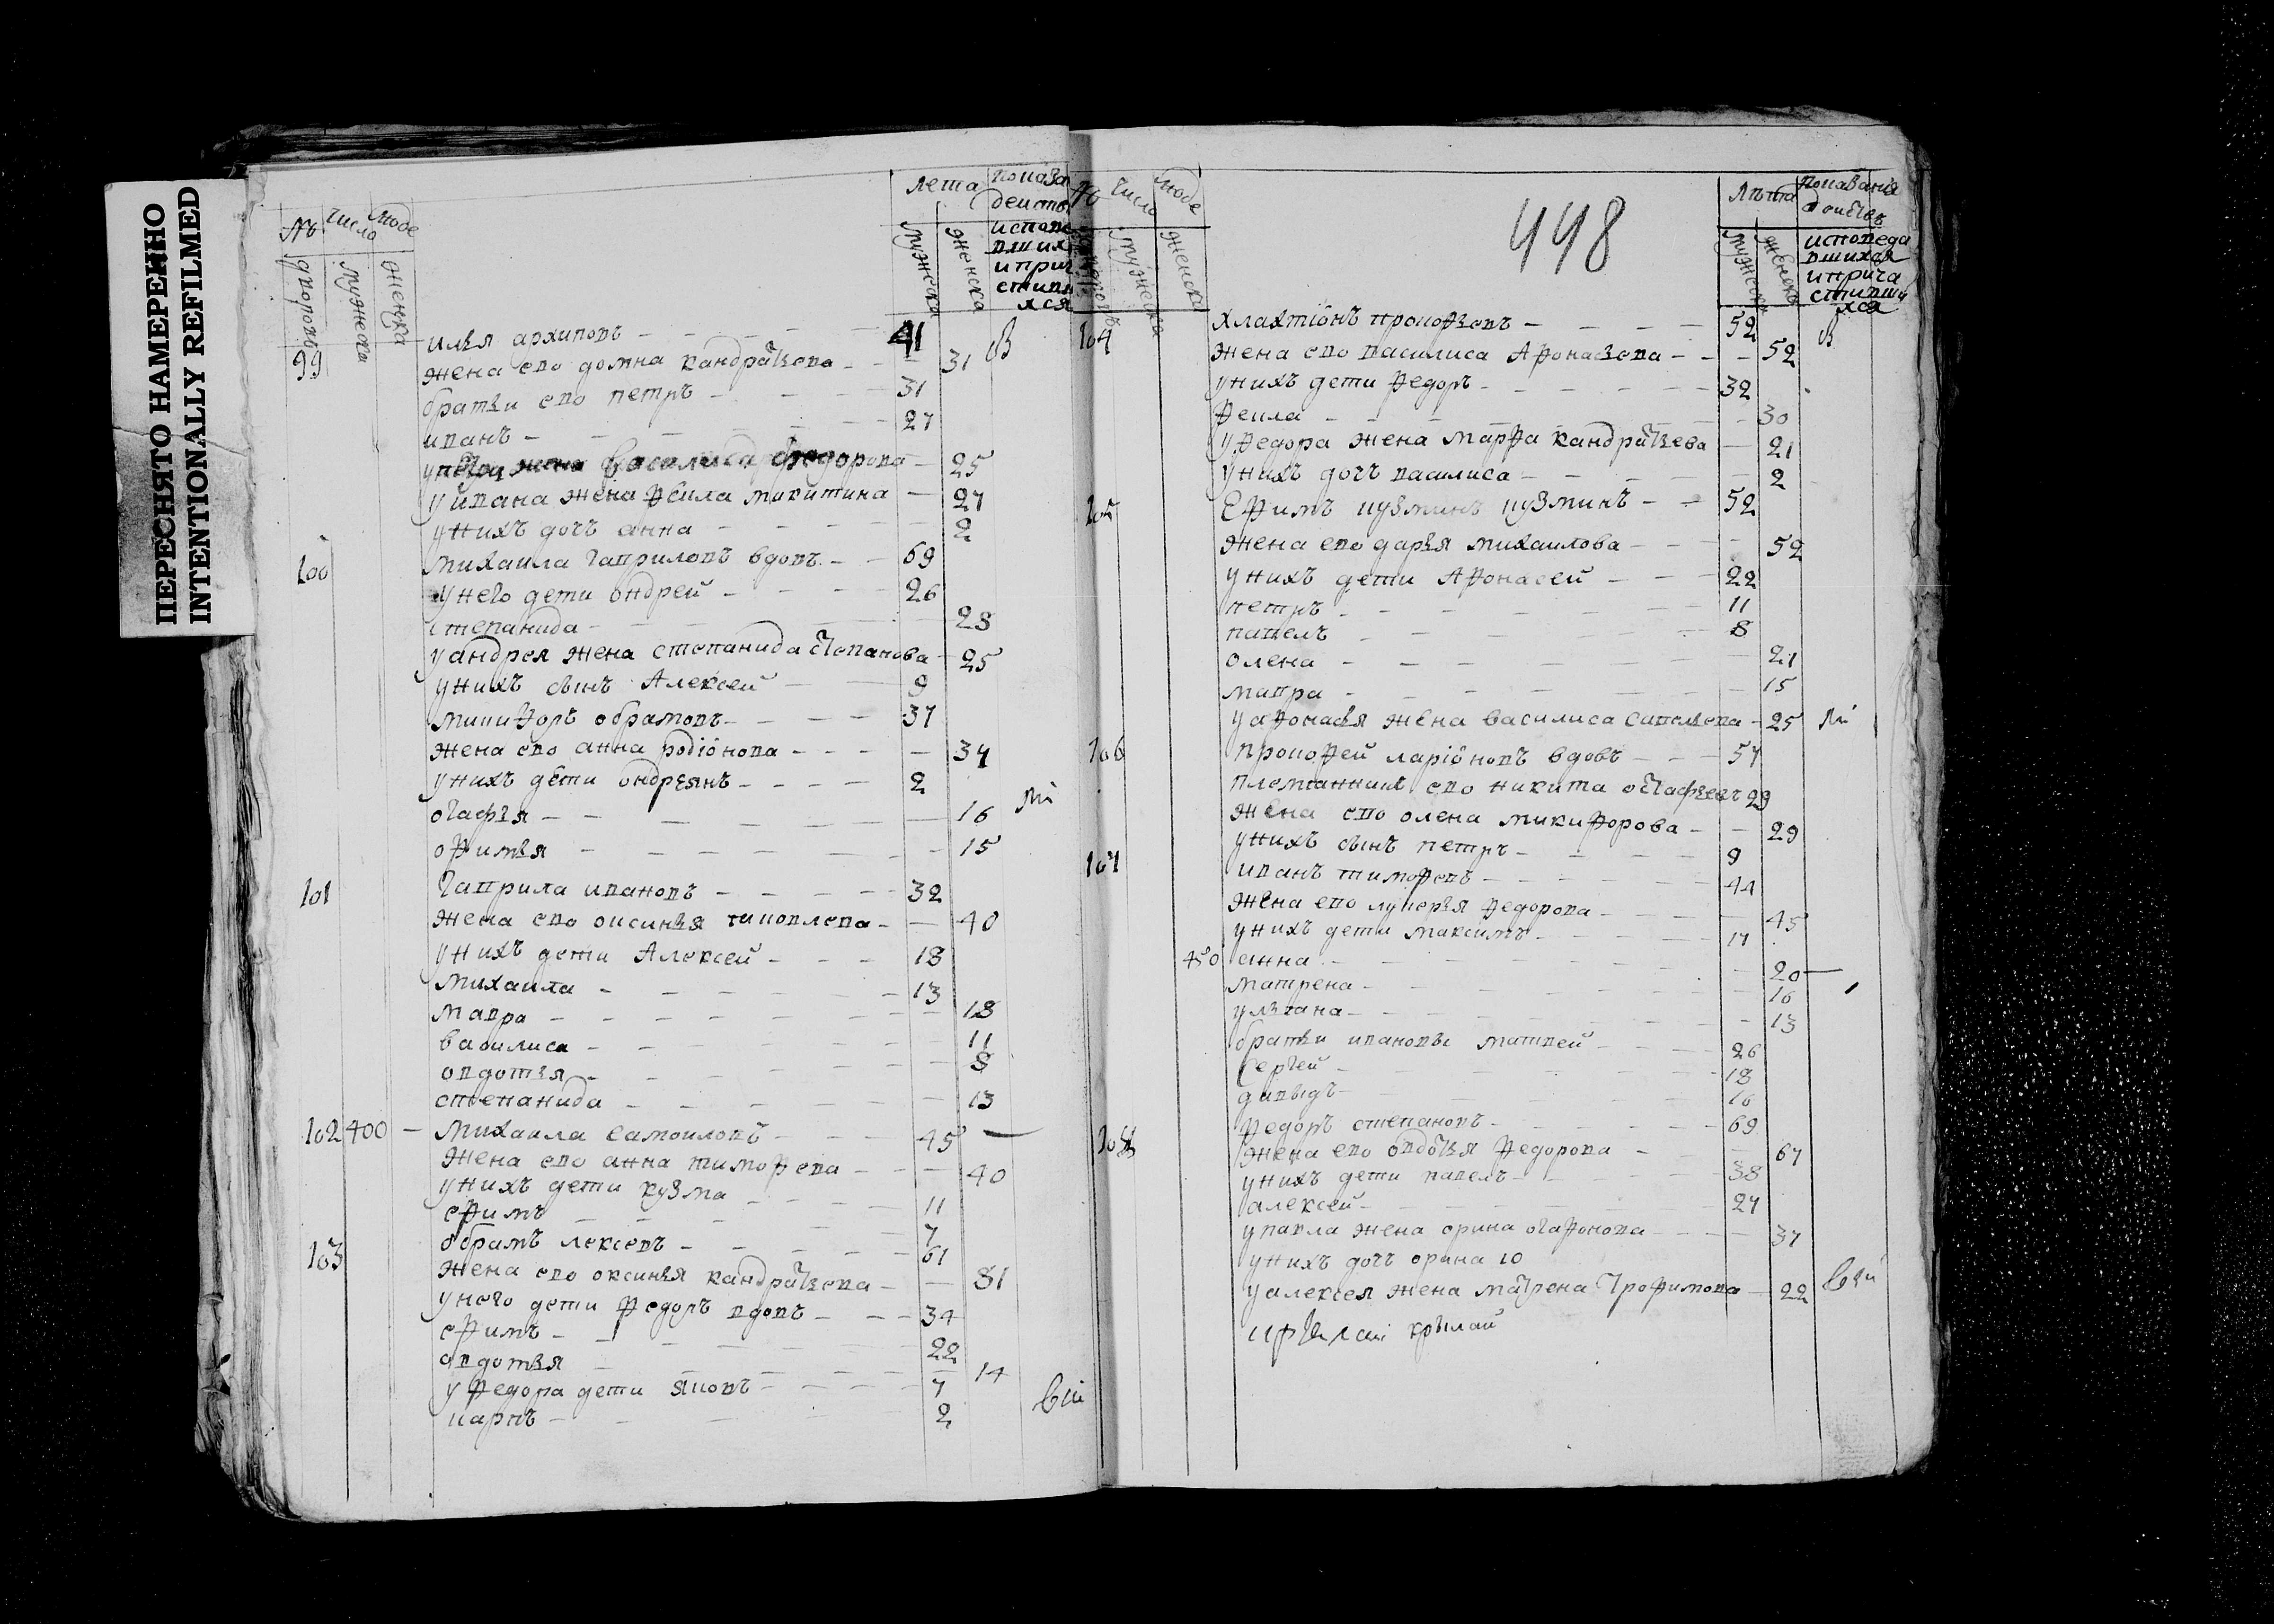 ПЕРЕСНЯТО НАМЕРЕННО
INTENTIONALLY REFILMED
№ число люде
лета показа
действ
дворовъ мужеска женска
мужеска женска
испове
вших
и прич
стивш
хся
илья архиповъ 41
99 жена ево домна кандратьева 31
братьи ево петръ 31
иванъ 27
жена василиса федорова 25
у ивана жена фекла микитина 27
у нихъ дочь анна 2
100 михаила гавриловъ вдовъ 69
у него дети ондрей 26
степанида 23
у андрея жена степанида степанова 25
у нихъ сынъ Алексей 9
микифоръ обрамовъ 37
жена ево анна родіонова 34
у нихъ дети ондреянъ 2
огафья 16
офимья 15
101 гаврила ивановъ 32
жена ево оксинья яковлева 40
у нихъ дети Алексей 18
михаила 13
мавра 18
василиса 11
овдотья 8
степанида 13
102 400 михаила самоиловъ 45
жена ево анна тимофева 40
у нихъ дети кузма 11
ефимъ 7
103 обрамъ лексевъ 61
жена ево оксинья кандратьева 31
у него дети федоръ вдовъ 34
ефимъ 22
овдотья 14
у федора дети яковъ 7
карпъ 2
№ число люде
448
лѣта показания
действъ
мужеска женска
мужеска женска
исповеда
вшихся
и прича
стивши
хся
104 хлактіонъ прокофьевъ 52
жена ево василиса Афонасьева 52
у нихъ дети федоръ 32
фекла 30
у федора жена марфа кандратьева 21
у нихъ дочь василиса 2
105 Ефимъ кузминъ кузминъ 52
жена ево дарья михаилова 52
у нихъ дети Афонасей 22
петръ 11
павелъ 8
олена 21
мавра 15
у афонасья жена василиса савельева 25
106 прокофей ларіоновъ вдовъ 57
племянникъ ево никита остафьевъ 29
жена ево олена микифорова 29
у нихъ сынъ петръ 9
107 иванъ тимофевъ 44
жена ево лукерья федорова 45
у нихъ дети максимъ 17
450 анна 20
матрена 16
ульяна 13
братьи ивановы матвей 26
Сергей 18
давыдъ 16
108 федоръ степановъ 69
жена ево овдотья федорова 67
у нихъ дети павелъ 38
алексей 27
у павла жена орина огафонова 37
у нихъ дочь орина 10
у алексея жена матрена трофимова 22